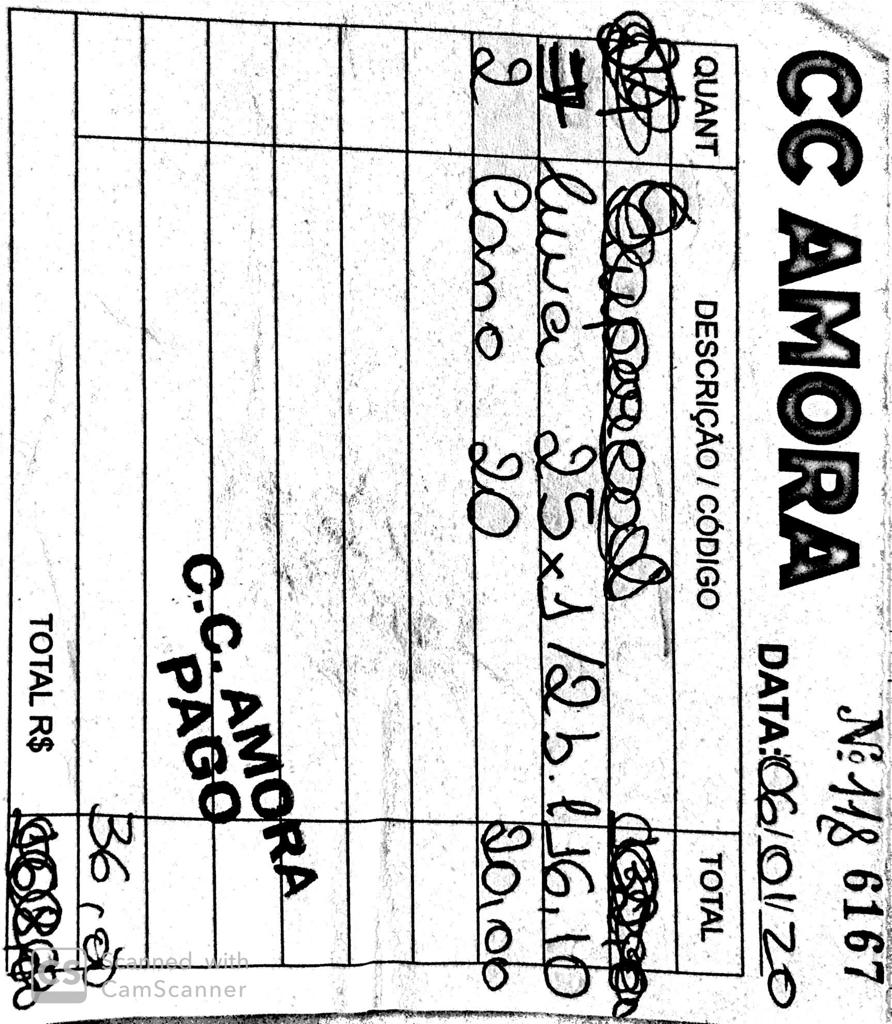 CC AMORA
Nº 118 6167
DATA: 06/01/20
QUANT DESCRIÇÃO / CÓDIGO TOTAL
7 luva 25 x 1/2 b.l 16,10
2 Cano 20 20,00
C.C. AMORA
PAGO
36,00
TOTAL R$
CS Scanned with
CamScanner